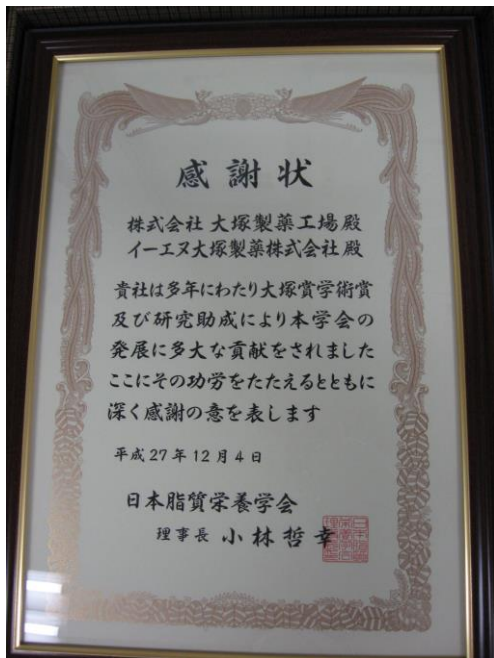 感謝状
株式会社 大塚製薬工場 殿
イーエヌ大塚製薬株式会社 殿
貴社は多年にわたり大塚賞学術賞
及び研究助成により本学会の
発展に多大な貢献をされました
ここにその功労をたたえるとともに
深く感謝の意を表します
平成27年12月4日
日本脂質栄養学会
理事長 小林哲幸